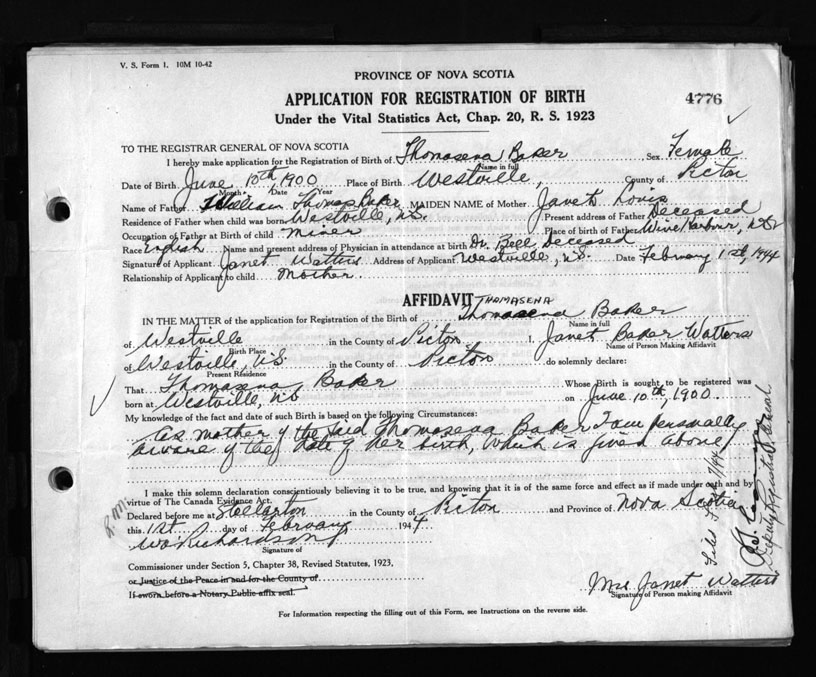 V. S. Form 1. 10M 10-42
PROVINCE OF NOVA SCOTIA
APPLICATION FOR REGISTRATION OF BIRTH
4776
Under the Vital Statistics Act, Chap. 20, R. S. 1923
TO THE REGISTRAR GENERAL OF NOVA SCOTIA
I hereby make application for the Registration of Birth of Thomasena Baker Sex Female
Name in full
Date of Birth June 10th, 1900 Place of Birth Westville, County of Pictou
Month Date Year
Name of Father William Thomas Baker MAIDEN NAME of Mother Janet
Residence of Father when child was born Westville, N.S. Present address of Father Deceased
Occupation of Father at Birth of child miner Place of birth of Father Wine Harbour, N.S.
Race English Name and present address of Physician in attendance at birth Dr. Bell, Deceased
Signature of Applicant Janet Watters Address of Applicant Westville, N.S. Date February 1st, 1944
Relationship of Applicant to child Mother
AFFIDAVIT THOMASENA
IN THE MATTER of the application for Registration of the Birth of Thomasena Baker
Name in full
of Westville in the County of Pictou I, Janet Baker Watters
Birth Place Name of Person Making Affidavit
of Westville, N.S. in the County of Pictou do solemnly declare:
Present Residence
That Thomasena Baker Whose Birth is sought to be registered was
born at Westville, N.S. on June 10th, 1900.
My knowledge of the fact and date of such Birth is based on the following Circumstances:
As mother of the said Thomasena Baker I am personally
aware of the date of her birth, which is given above
I make this solemn declaration conscientiously believing it to be true, and knowing that it is of the same force and effect as if made under oath and by
virtue of The Canada Evidence Act.
Declared before me at Stellarton in the County of Pictou and Province of Nova Scotia
this 1st day of February 1944
W. Richardson
Signature of
Commissioner under Section 5, Chapter 38, Revised Statutes, 1923,
or Justice of the Peace in and for the County of
If sworn before a Notary Public affix seal.
Mrs Janet Watters
Signature of Person making Affidavit
For Information respecting the filling out of this Form, see Instructions on the reverse side.